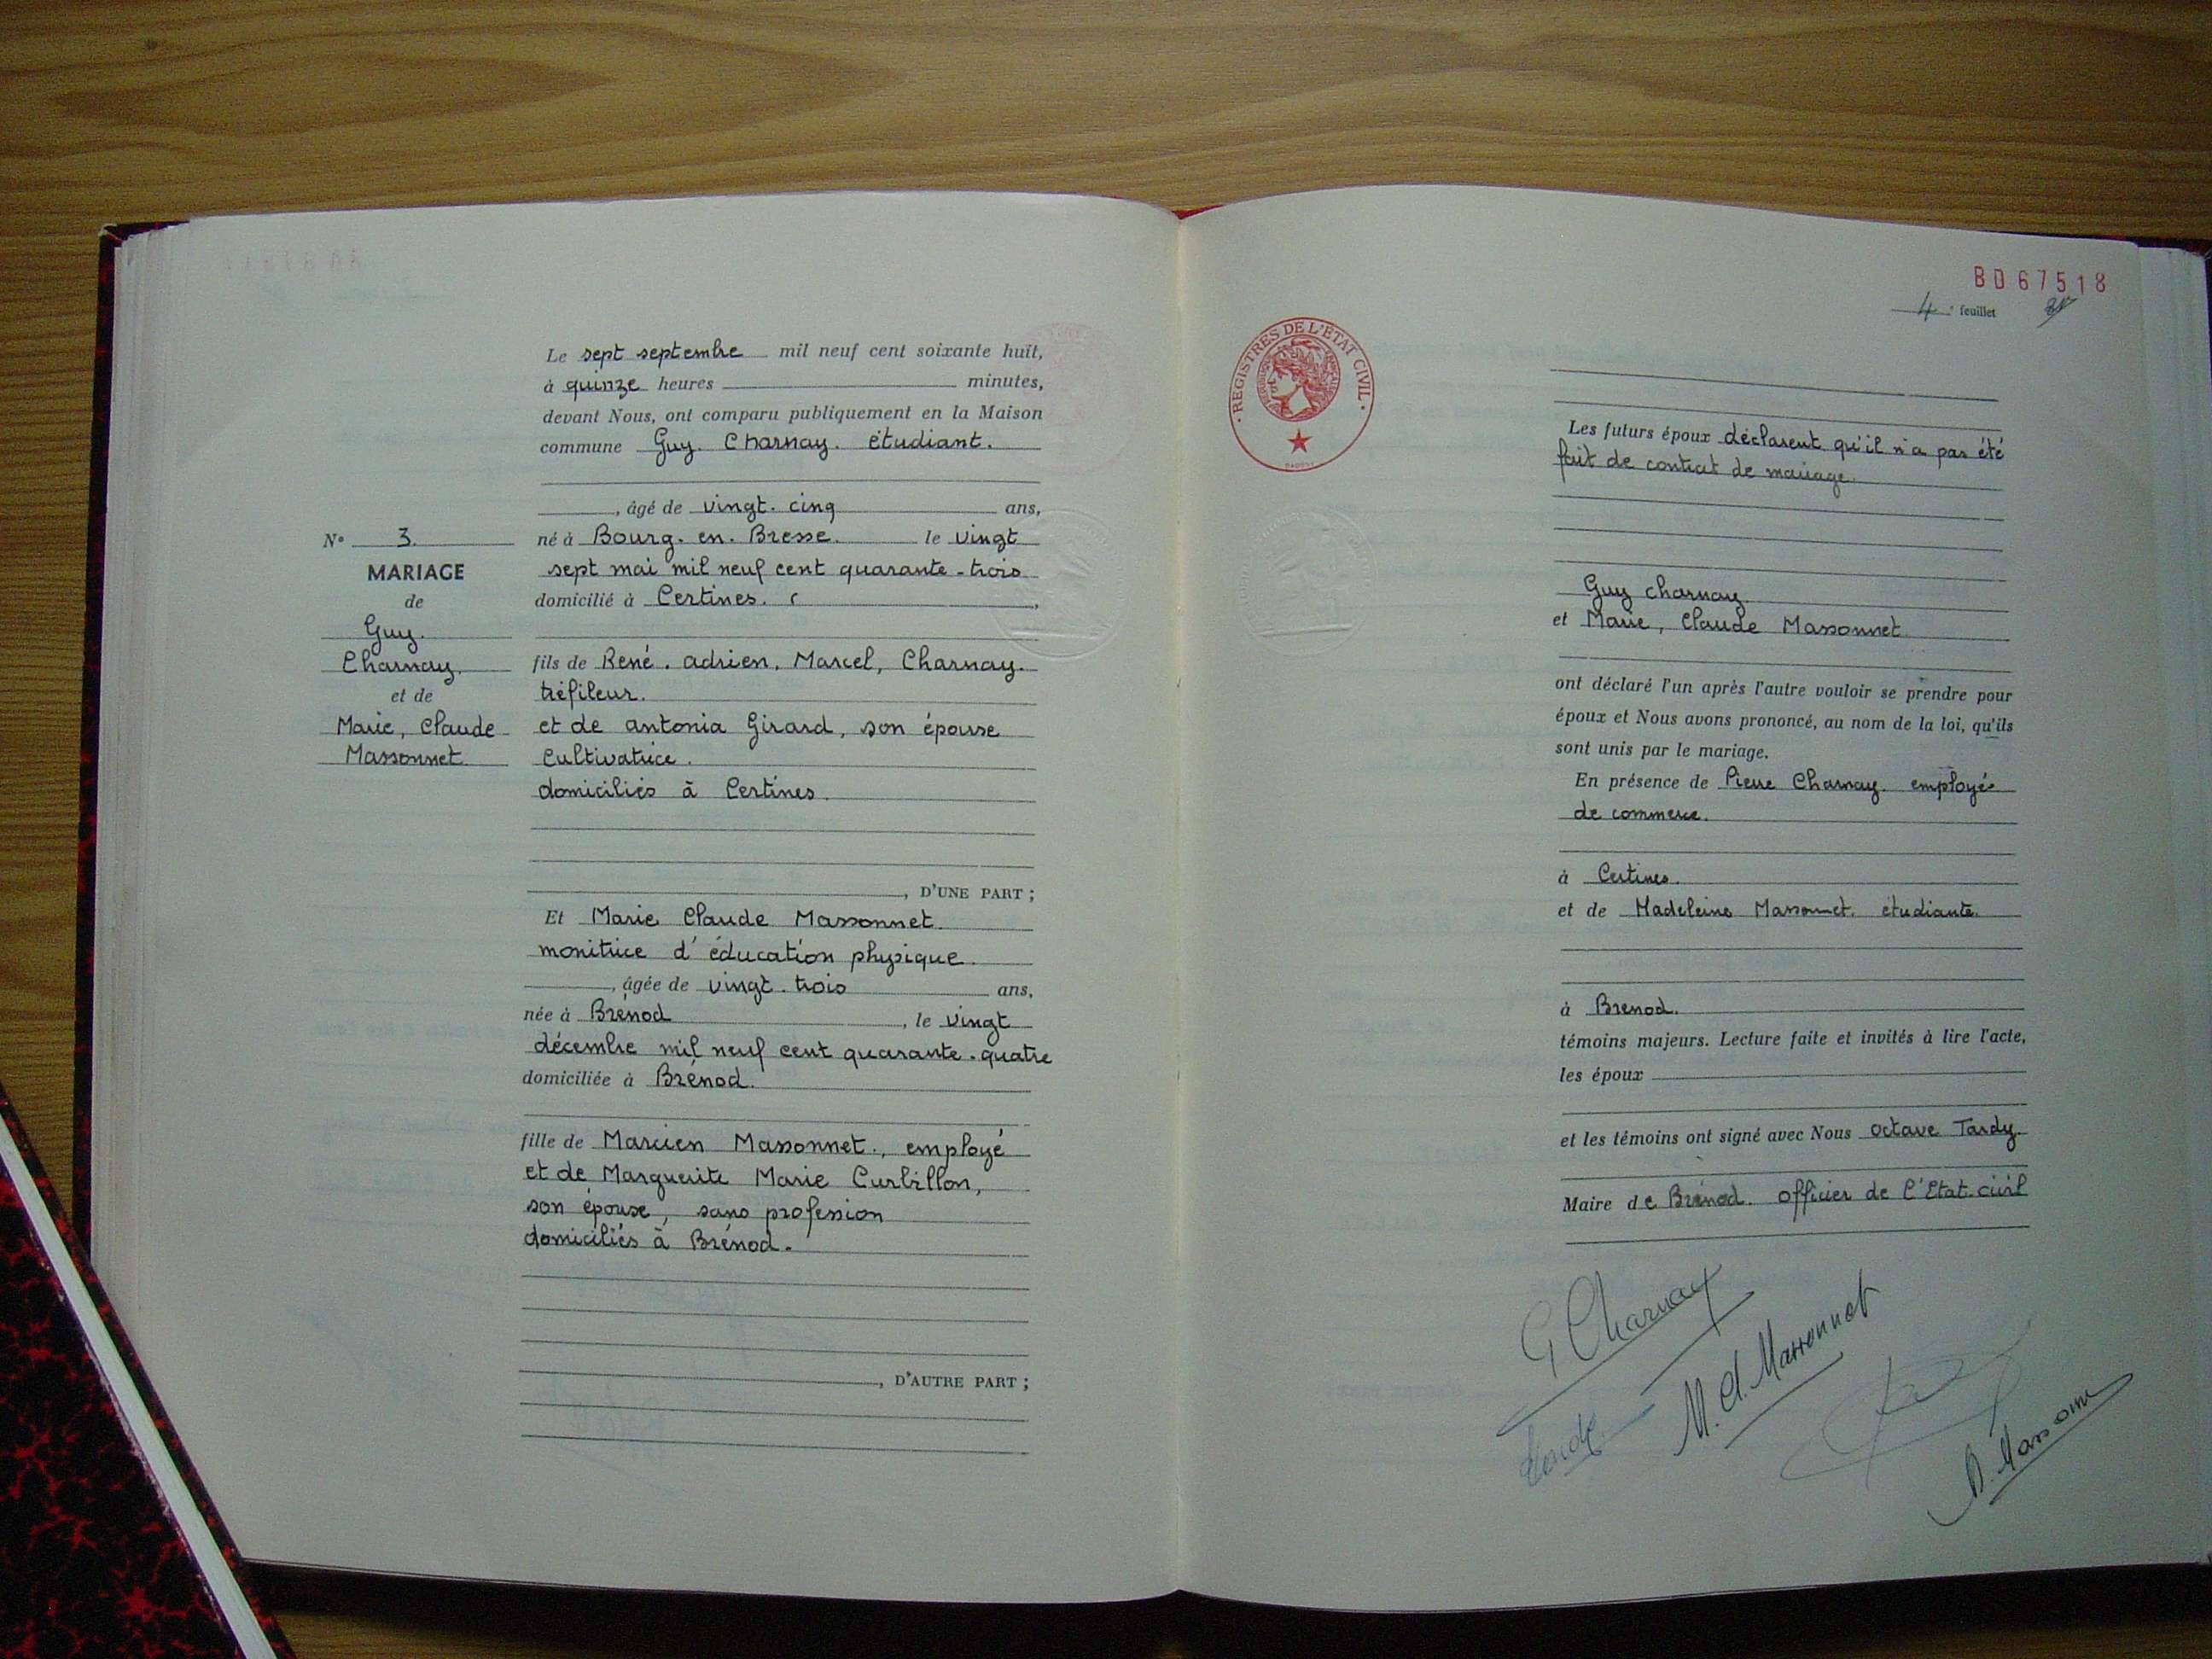 Le sept septembre mil neuf cent soixante huit,
à quinze heures minutes,
devant Nous, ont comparu publiquement en la Maison
commune Guy. Charnay. étudiant.
, âgé de vingt. cinq ans,
né à Bourg. en. Bresse. le vingt
sept mai mil neuf cent quarante-trois
domicilié à Certines.
N° 3.
MARIAGE
de
Guy.
Charnay.
et de
Marie, Claude
Massonnet
fils de René. adrien, Marcel, Charnay.
tréfileur.
et de antonia Girard, son épouse
cultivatrice.
domiciliés à Certines.
, D'UNE PART ;
Et Marie Claude Massonnet.
monitrice d'éducation physique.
, âgée de vingt. trois ans,
née à Brénod , le vingt
décembre mil neuf cent quarante. quatre
domiciliée à Brénod.
fille de Marcien Massonnet., employé
et de Marguerite Marie Curbillon,
son épouse, sans profession
domiciliés à Brénod.
, D'AUTRE PART ;
BD67518
4e feuillet
REGISTRES DE L'ÉTAT CIVIL
Les futurs époux déclarent qu'il n'a pas été
fait de contrat de mariage.
Guy Charnay
et Marie, Claude Massonnet
ont déclaré l'un après l'autre vouloir se prendre pour
époux et Nous avons prononcé, au nom de la loi, qu'ils
sont unis par le mariage.
En présence de Pierre Charnay. employé
de commerce.
à Certines.
et de Madeleine Massonnet. étudiante.
à Brenod.
témoins majeurs. Lecture faite et invités à lire l'acte,
les époux
et les témoins ont signé avec Nous Octave Tardy.
Maire de Brénod. officier de l'Etat.civil
G Charnay
M. Cl. Massonnet